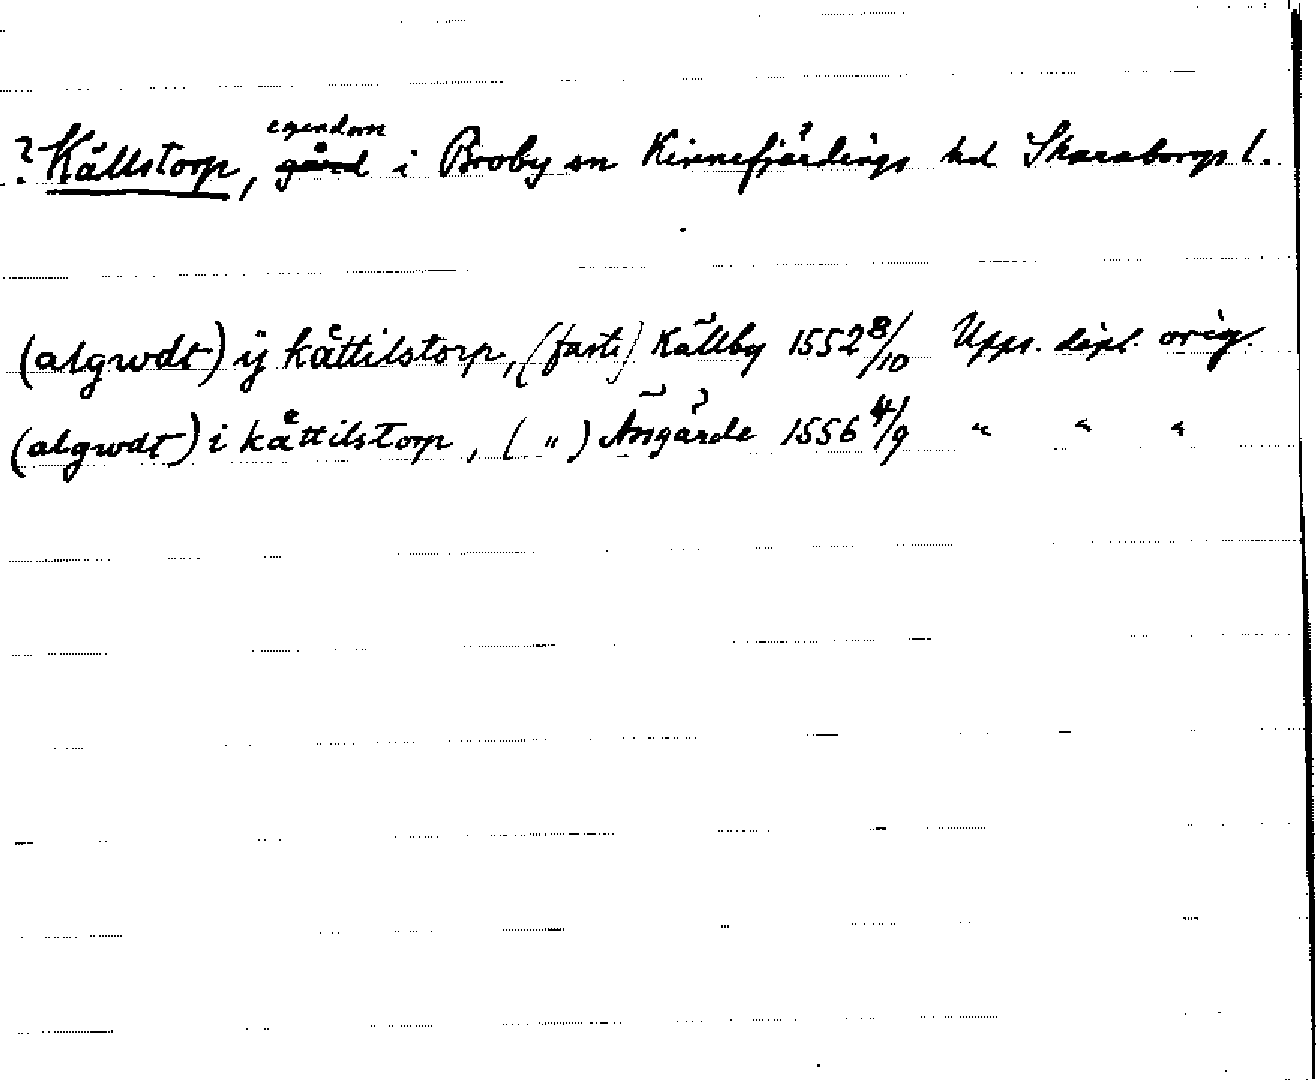 ? Källstorp, egendom ~~gård~~ i Broby sn Kinnefjärdings hd Skaraborgs l.
(algwdt) ij kåttilstorp, (faste) Källby 1552 8/10 Upps. dipl. orig.
(algwdt) i kåttilstorp, ( " ) Åsgärde 1556 4/9 " " "